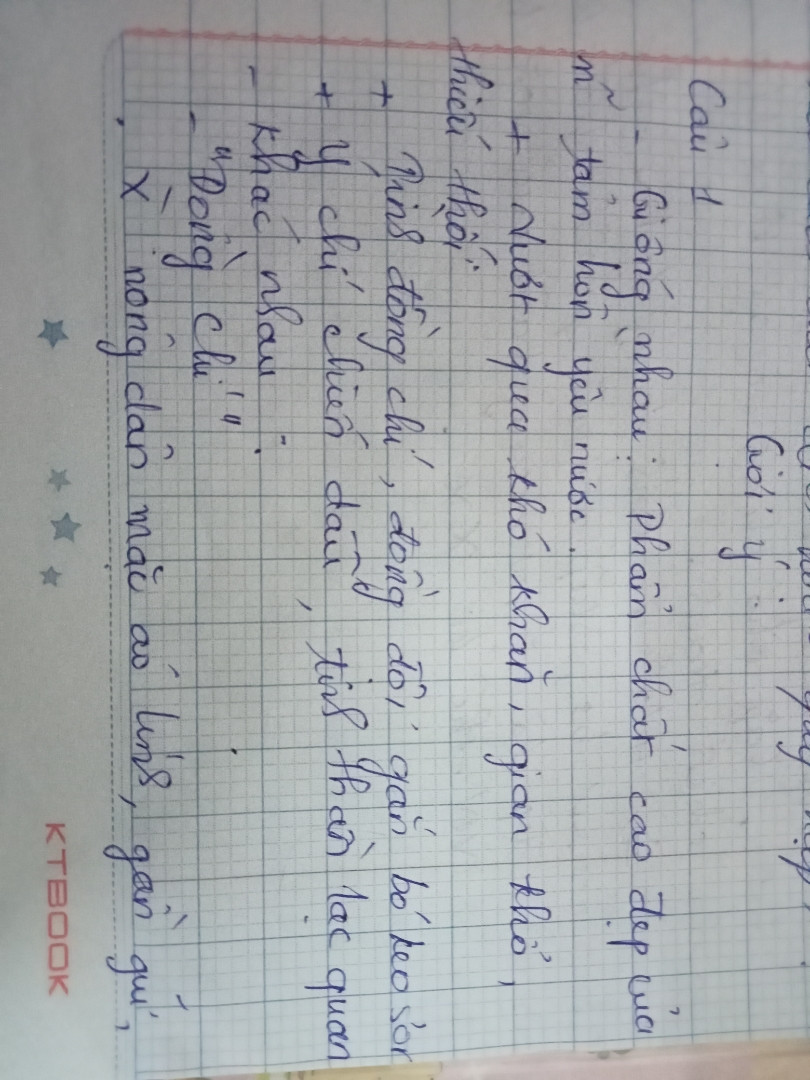 Gợi ý:
Câu 1
- Giống nhau: Phẩm chất cao đẹp của
n~ tâm hồn yêu nước.
+ Vượt qua khó khăn, gian khổ,
thiếu thốn
+ Tình đồng chí, đồng đội gắn bó keo sơn
+ Ý chí chiến đấu, tinh thần lạc quan
- Khác nhau:
- "Đồng chí"
X nông dân mặc áo lính, gần gũi,
KTBOOK